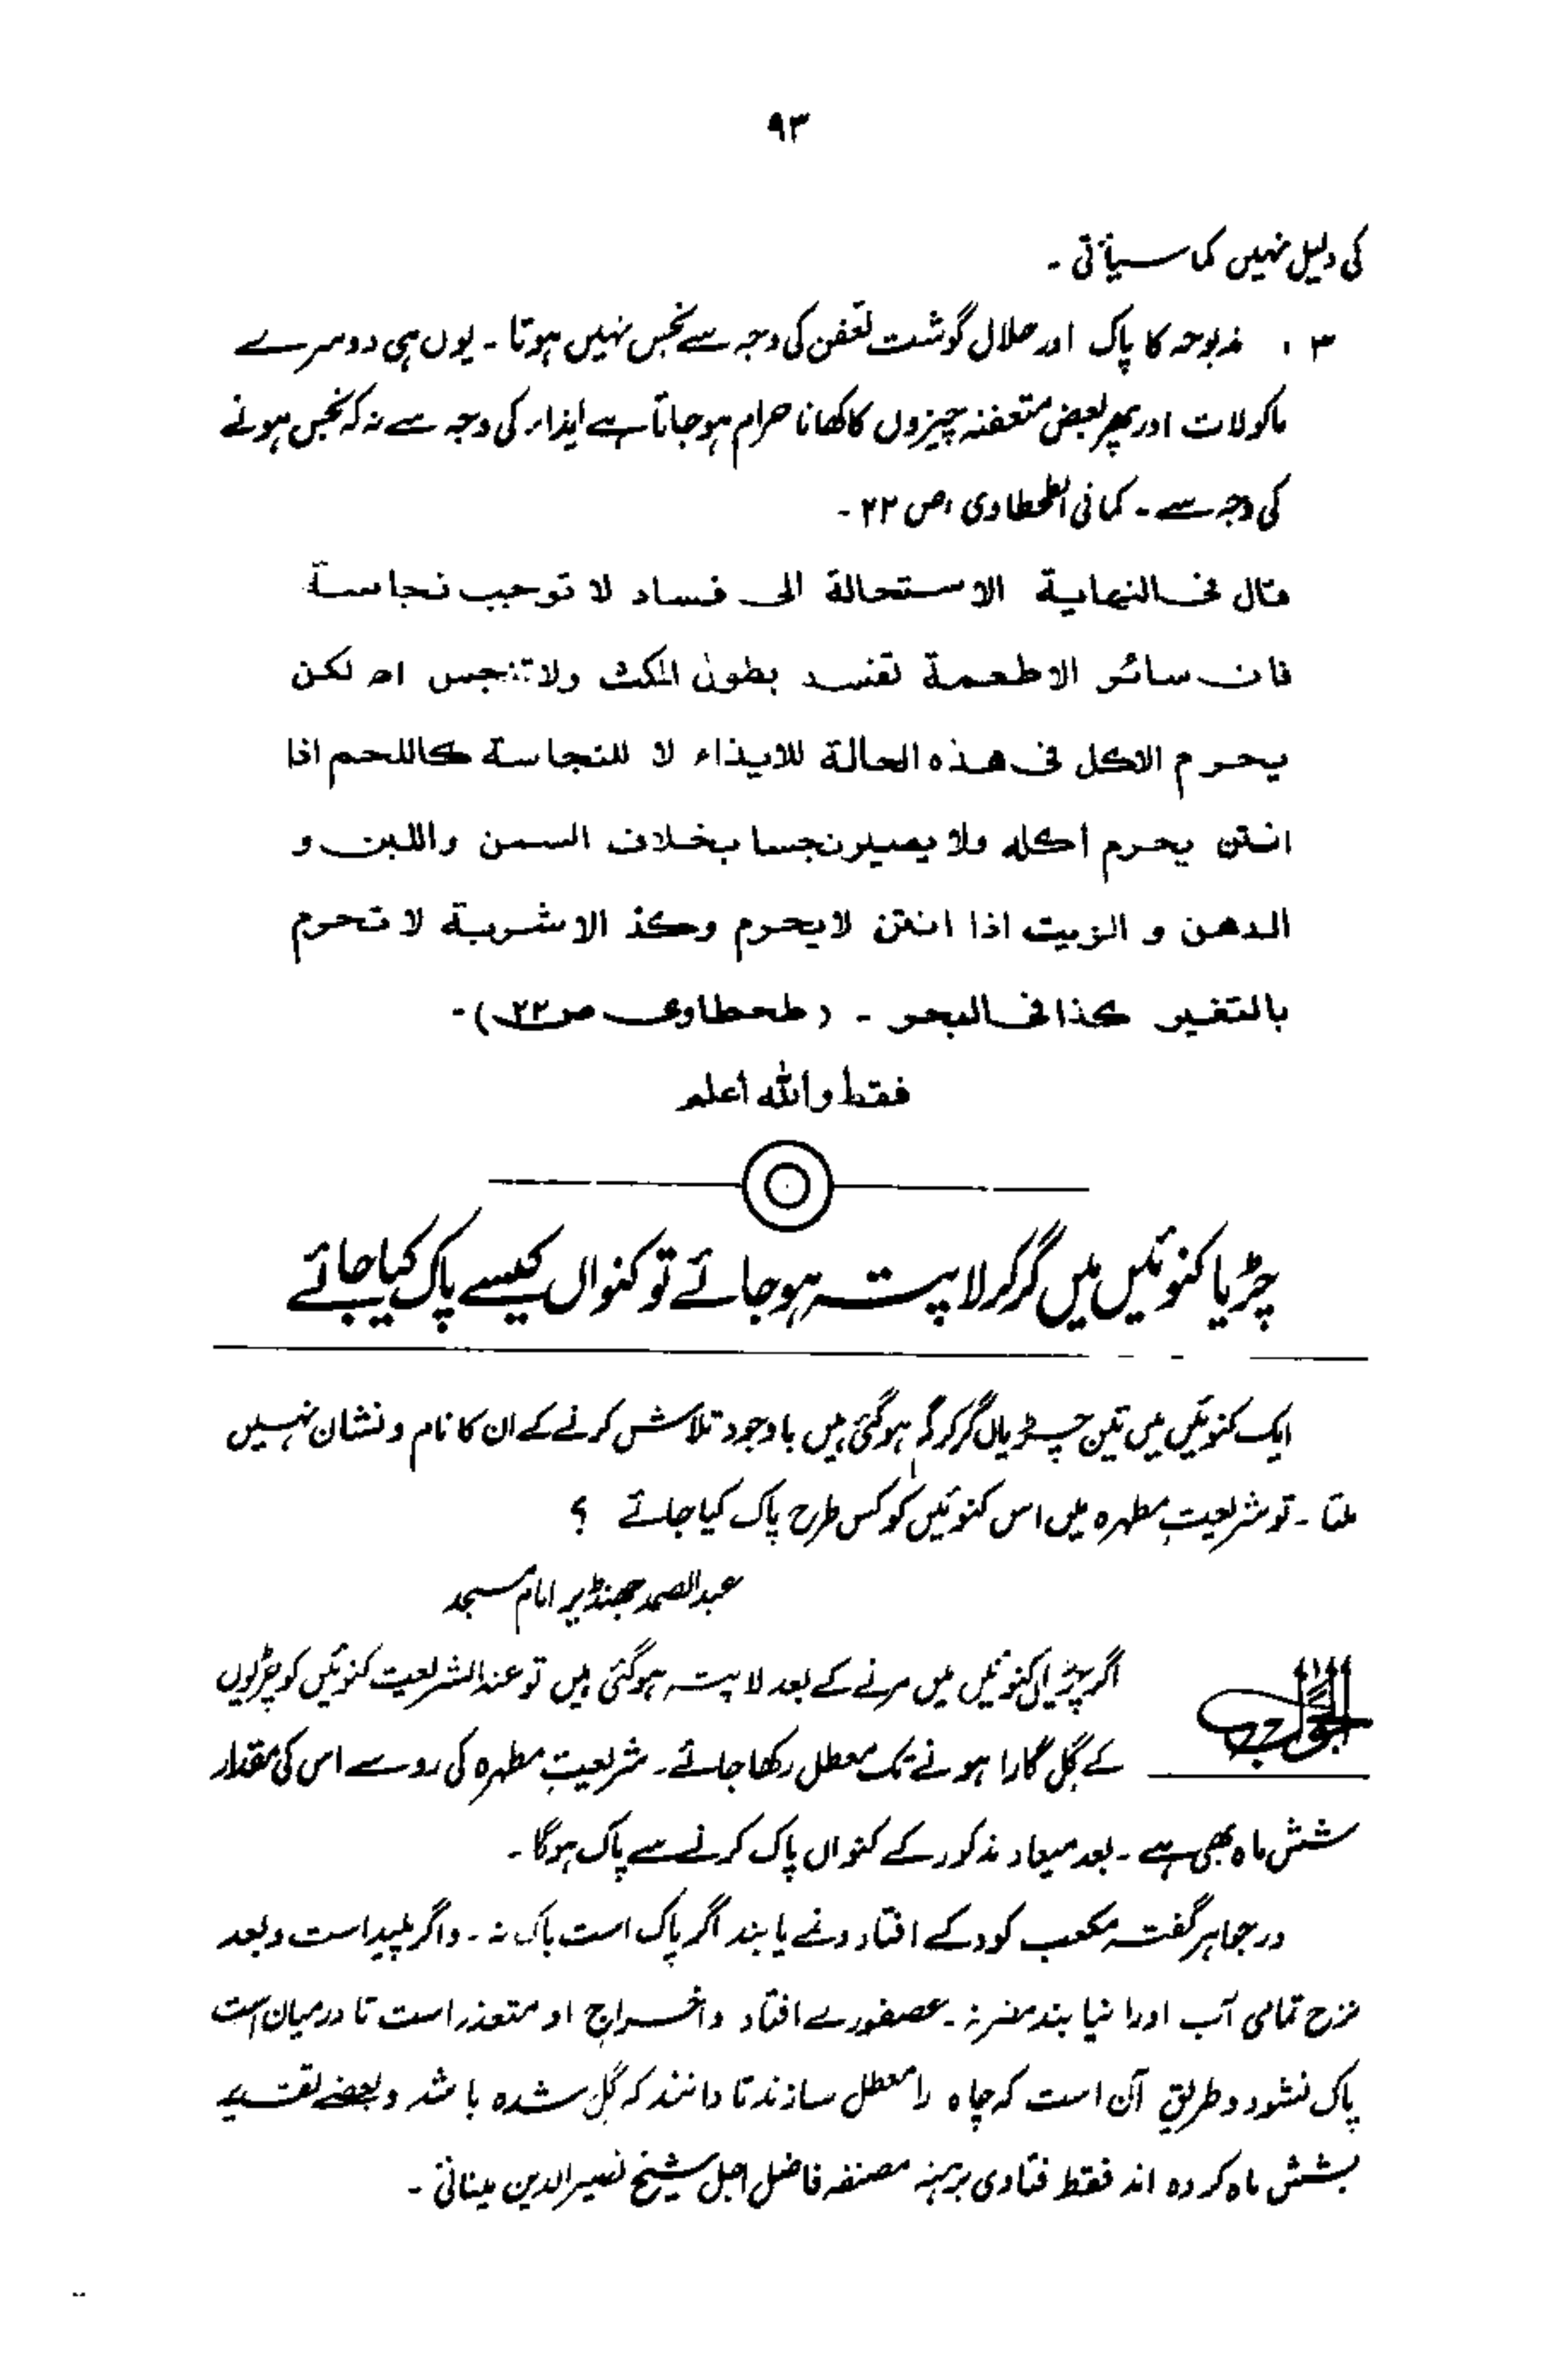 ۹۳
کی دلیل نہیں کما سیأتی ۔
۳ ، مذبوحہ کا پاک اور حلال گوشت تعفن کی وجہ سے نجس نہیں ہوتا ۔ یوں ہی دوسرے
ماکولات اور پھر بعض متعفنہ چیزوں کا کھانا حرام ہو جاتا ہے ایذاء کی وجہ سے نہ کہ نجس ہونے
کی وجہ سے ۔ کما فی الطحطاوی ، ص ۲۲ ۔
قال فی النهایة الاستحالة الی فساد لا توجب نجاسة
فان سائر الاطعمة تفسد بطول المکث ولا تنجس اھ لکن
یحرم الاکل فی هذه الحالة للایذاء لا للنجاسة کاللحم اذا
انتن یحرم أکله ولا یصیر نجسا بخلاف السمن واللبن و
الدهن و الزیت اذا انتن لا یحرم وکذ الاشربة لا تحرم
بالتغیر کذا فی البحر ۔ (طحطاوی ص ۲۲)۔
فقط واللہ أعلم
چڑیا کنوئیں میں گر کر لاپتہ ہو جائے تو کنواں کیسے پاک کیا جائے
ایک کنوئیں میں تین چڑیاں گر کر گم ہو گئی ہیں باوجود تلاش کرنے کے ان کا نام و نشان نہیں
ملتا ۔ تو شریعتِ مطہرہ میں اس کنوئیں کو کس طرح پاک کیا جائے ؟
عبد الصمد جھنڈیر امام مسجد
الجواب
اگر چڑیاں کنوئیں میں مرنے کے بعد لاپتہ ہو گئی ہیں تو عند الشریعت کنوئیں کو چڑیوں
کے گل گارا ہونے تک معطل رکھا جائے ۔ شریعتِ مطہرہ کی رو سے اس کی مقدار
شش ماہ بھی ہے ۔ بعد میعاد مذکور کے کنواں پاک کرنے سے پاک ہوگا ۔
در جواہر گفتہ مکعب کودکے افتاد و نمے یابند اگر پاک است باک نہ ۔ و اگر پلید است و بعد
نزح تمامی آب او را نیابند مضر نہ ۔ عصفورے افتاد و اخراج او متعذر است تا درمیان است
پاک نشود و طریق آن است کہ چاہ را معطل سازند تا دانند کہ گِل شدہ باشد و بعضے تقدیر
بشش ماہ کردہ اند فقط فتاوی برہنہ مصنفہ فاضل اجل شیخ نصیر الدین مینائی ۔